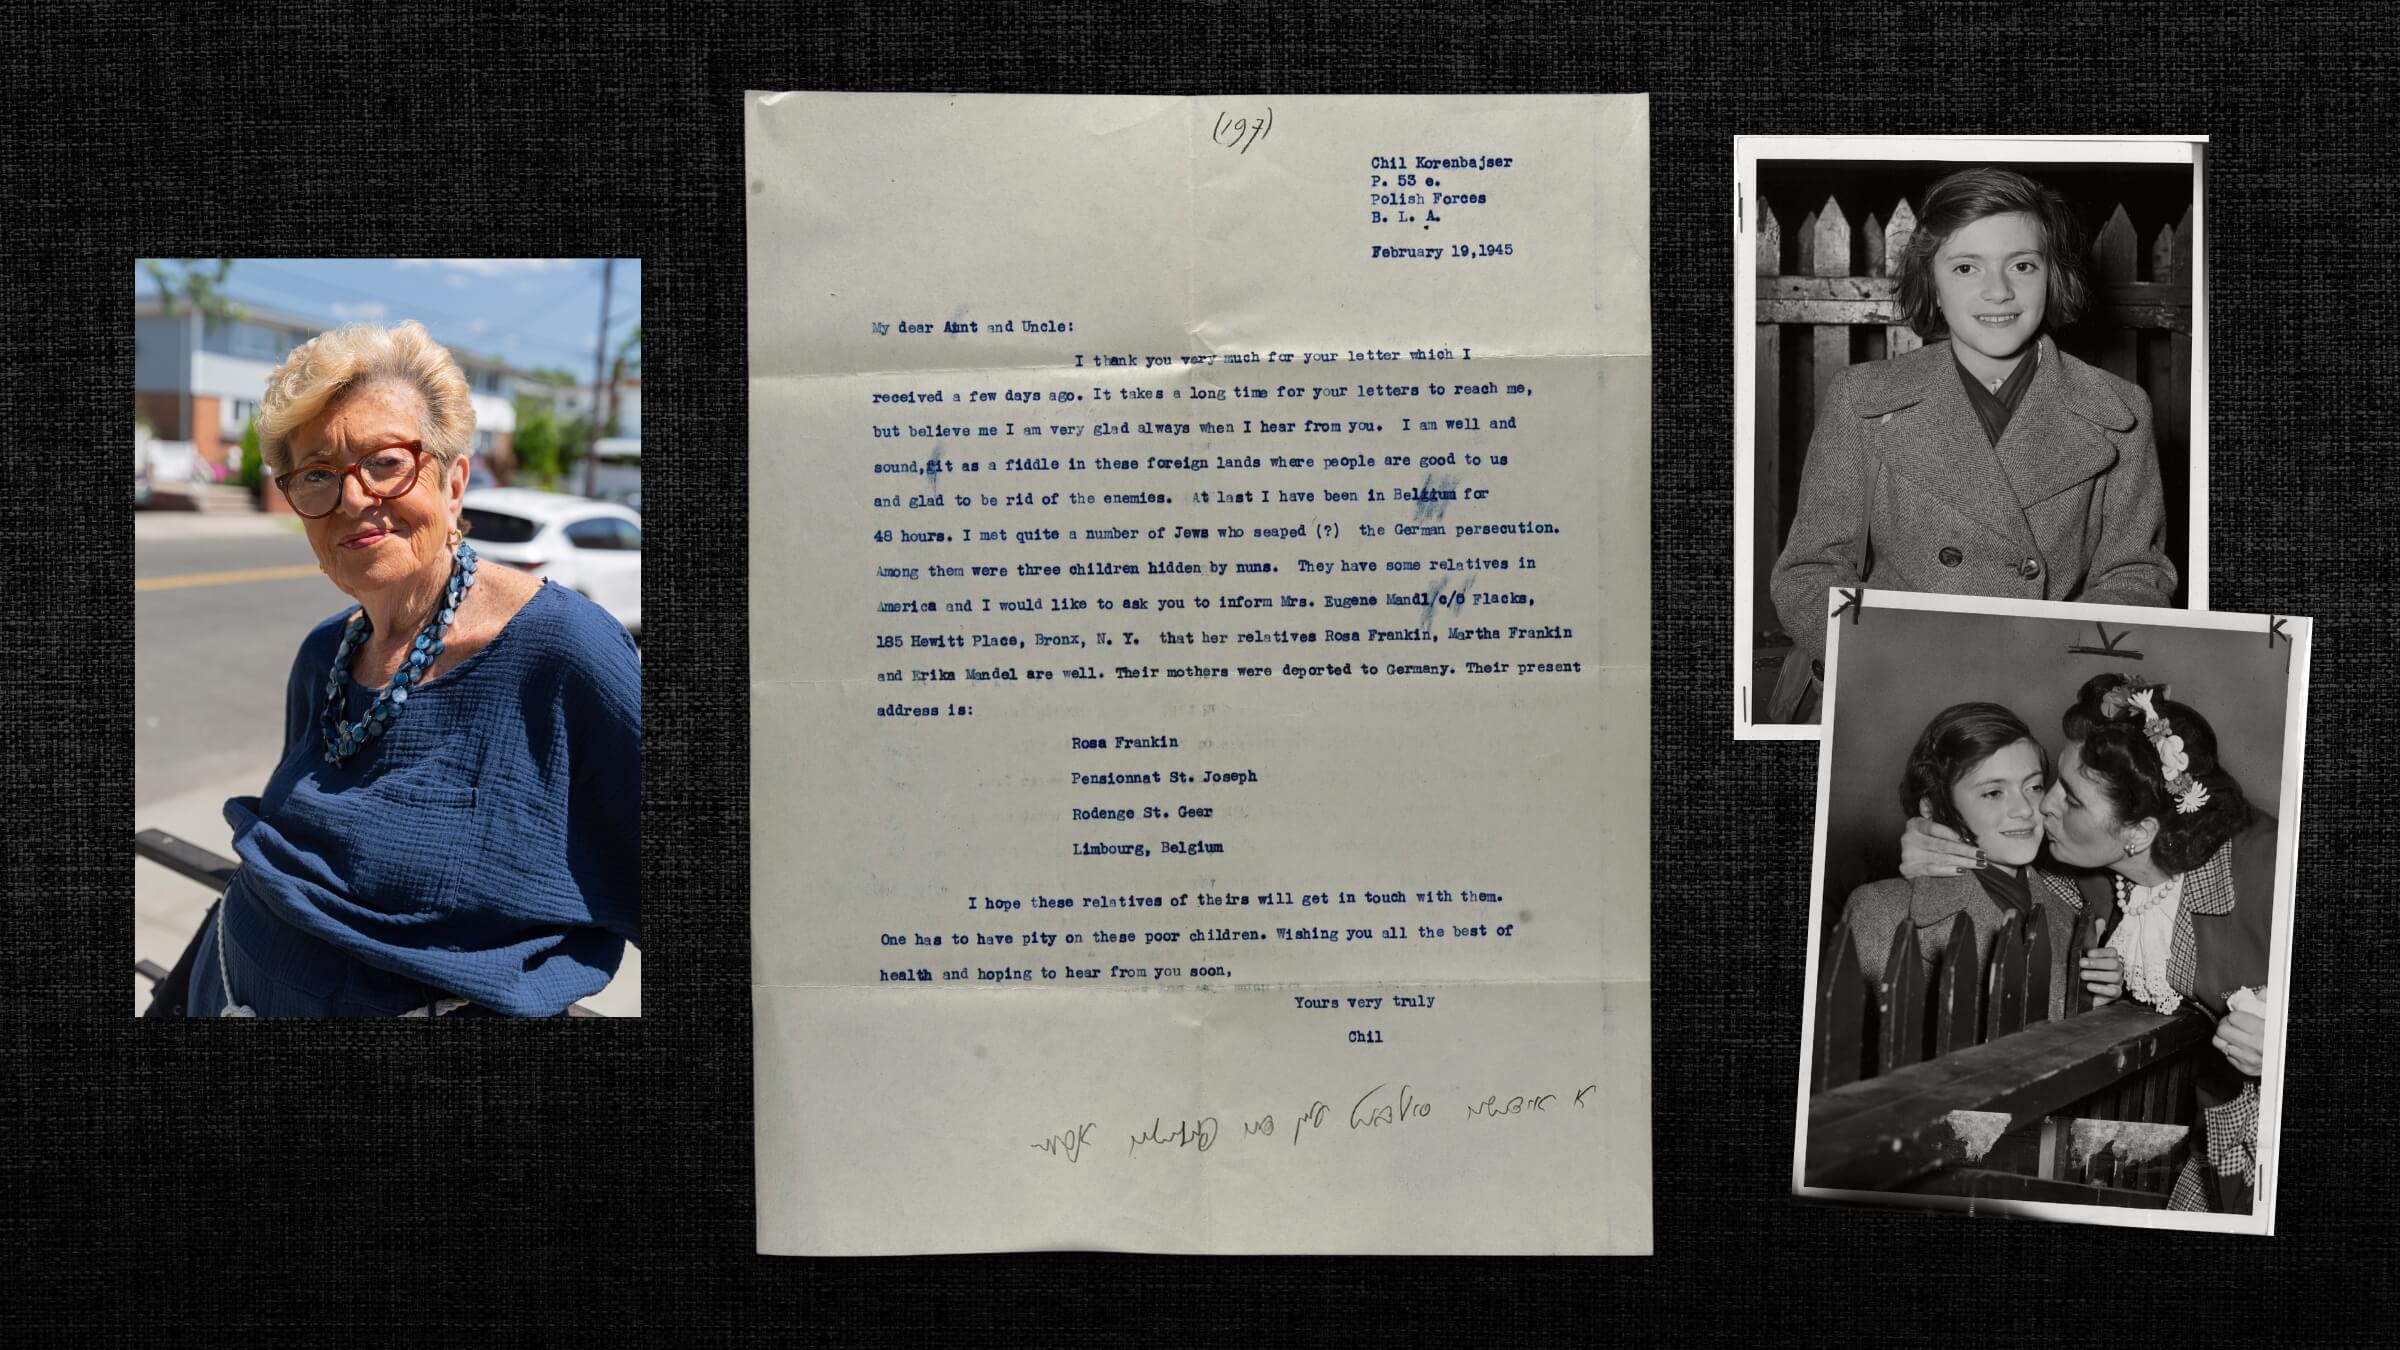 (197)
Chil Korenbajser
P. 53 e.
Polish Forces
B. L. A.
February 19,1945
My dear Aunt and Uncle:
I thank you very much for your letter which I
received a few days ago. It takes a long time for your letters to reach me,
but believe me I am very glad always when I hear from you. I am well and
sound,fit as a fiddle in these foreign lands where people are good to us
and glad to be rid of the enemies. At last I have been in Belgium for
48 hours. I met quite a number of Jews who seaped (?) the German persecution.
Among them were three children hidden by nuns. They have some relatives in
America and I would like to ask you to inform Mrs. Eugene Mandl/c/o Flacks,
185 Hewitt Place, Bronx, N. Y. that her relatives Rosa Frankin, Martha Frankin
and Erika Mandel are well. Their mothers were deported to Germany. Their present
address is:
Rosa Frankin
Pensionnat St. Joseph
Rodenge St. Geer
Limbourg, Belgium
I hope these relatives of theirs will get in touch with them.
One has to have pity on these poor children. Wishing you all the best of
health and hoping to hear from you soon,
Yours very truly
Chil